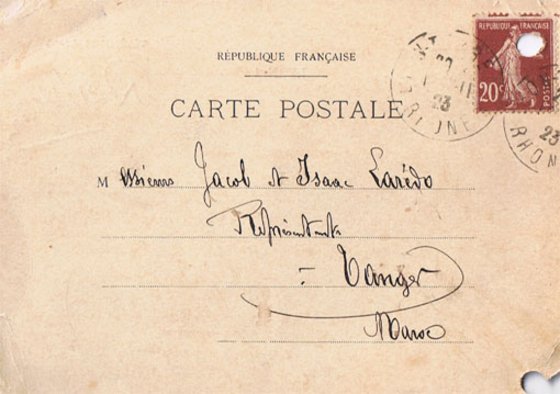 RÉPUBLIQUE FRANÇAISE
CARTE POSTALE
REPUBLIQUE FRANÇAISE
20c
POSTES
RHONE
23
RHON
23
Messieurs Jacob et Isaac Larédo
Représentants
Tanger
Maroc